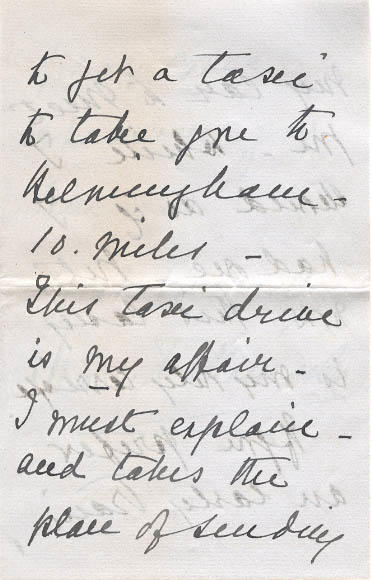 to get a taxi
to take you to
Helmingham -
10. miles -
This taxi drive
is my affair -
I must explain -
and takes the
place of sending